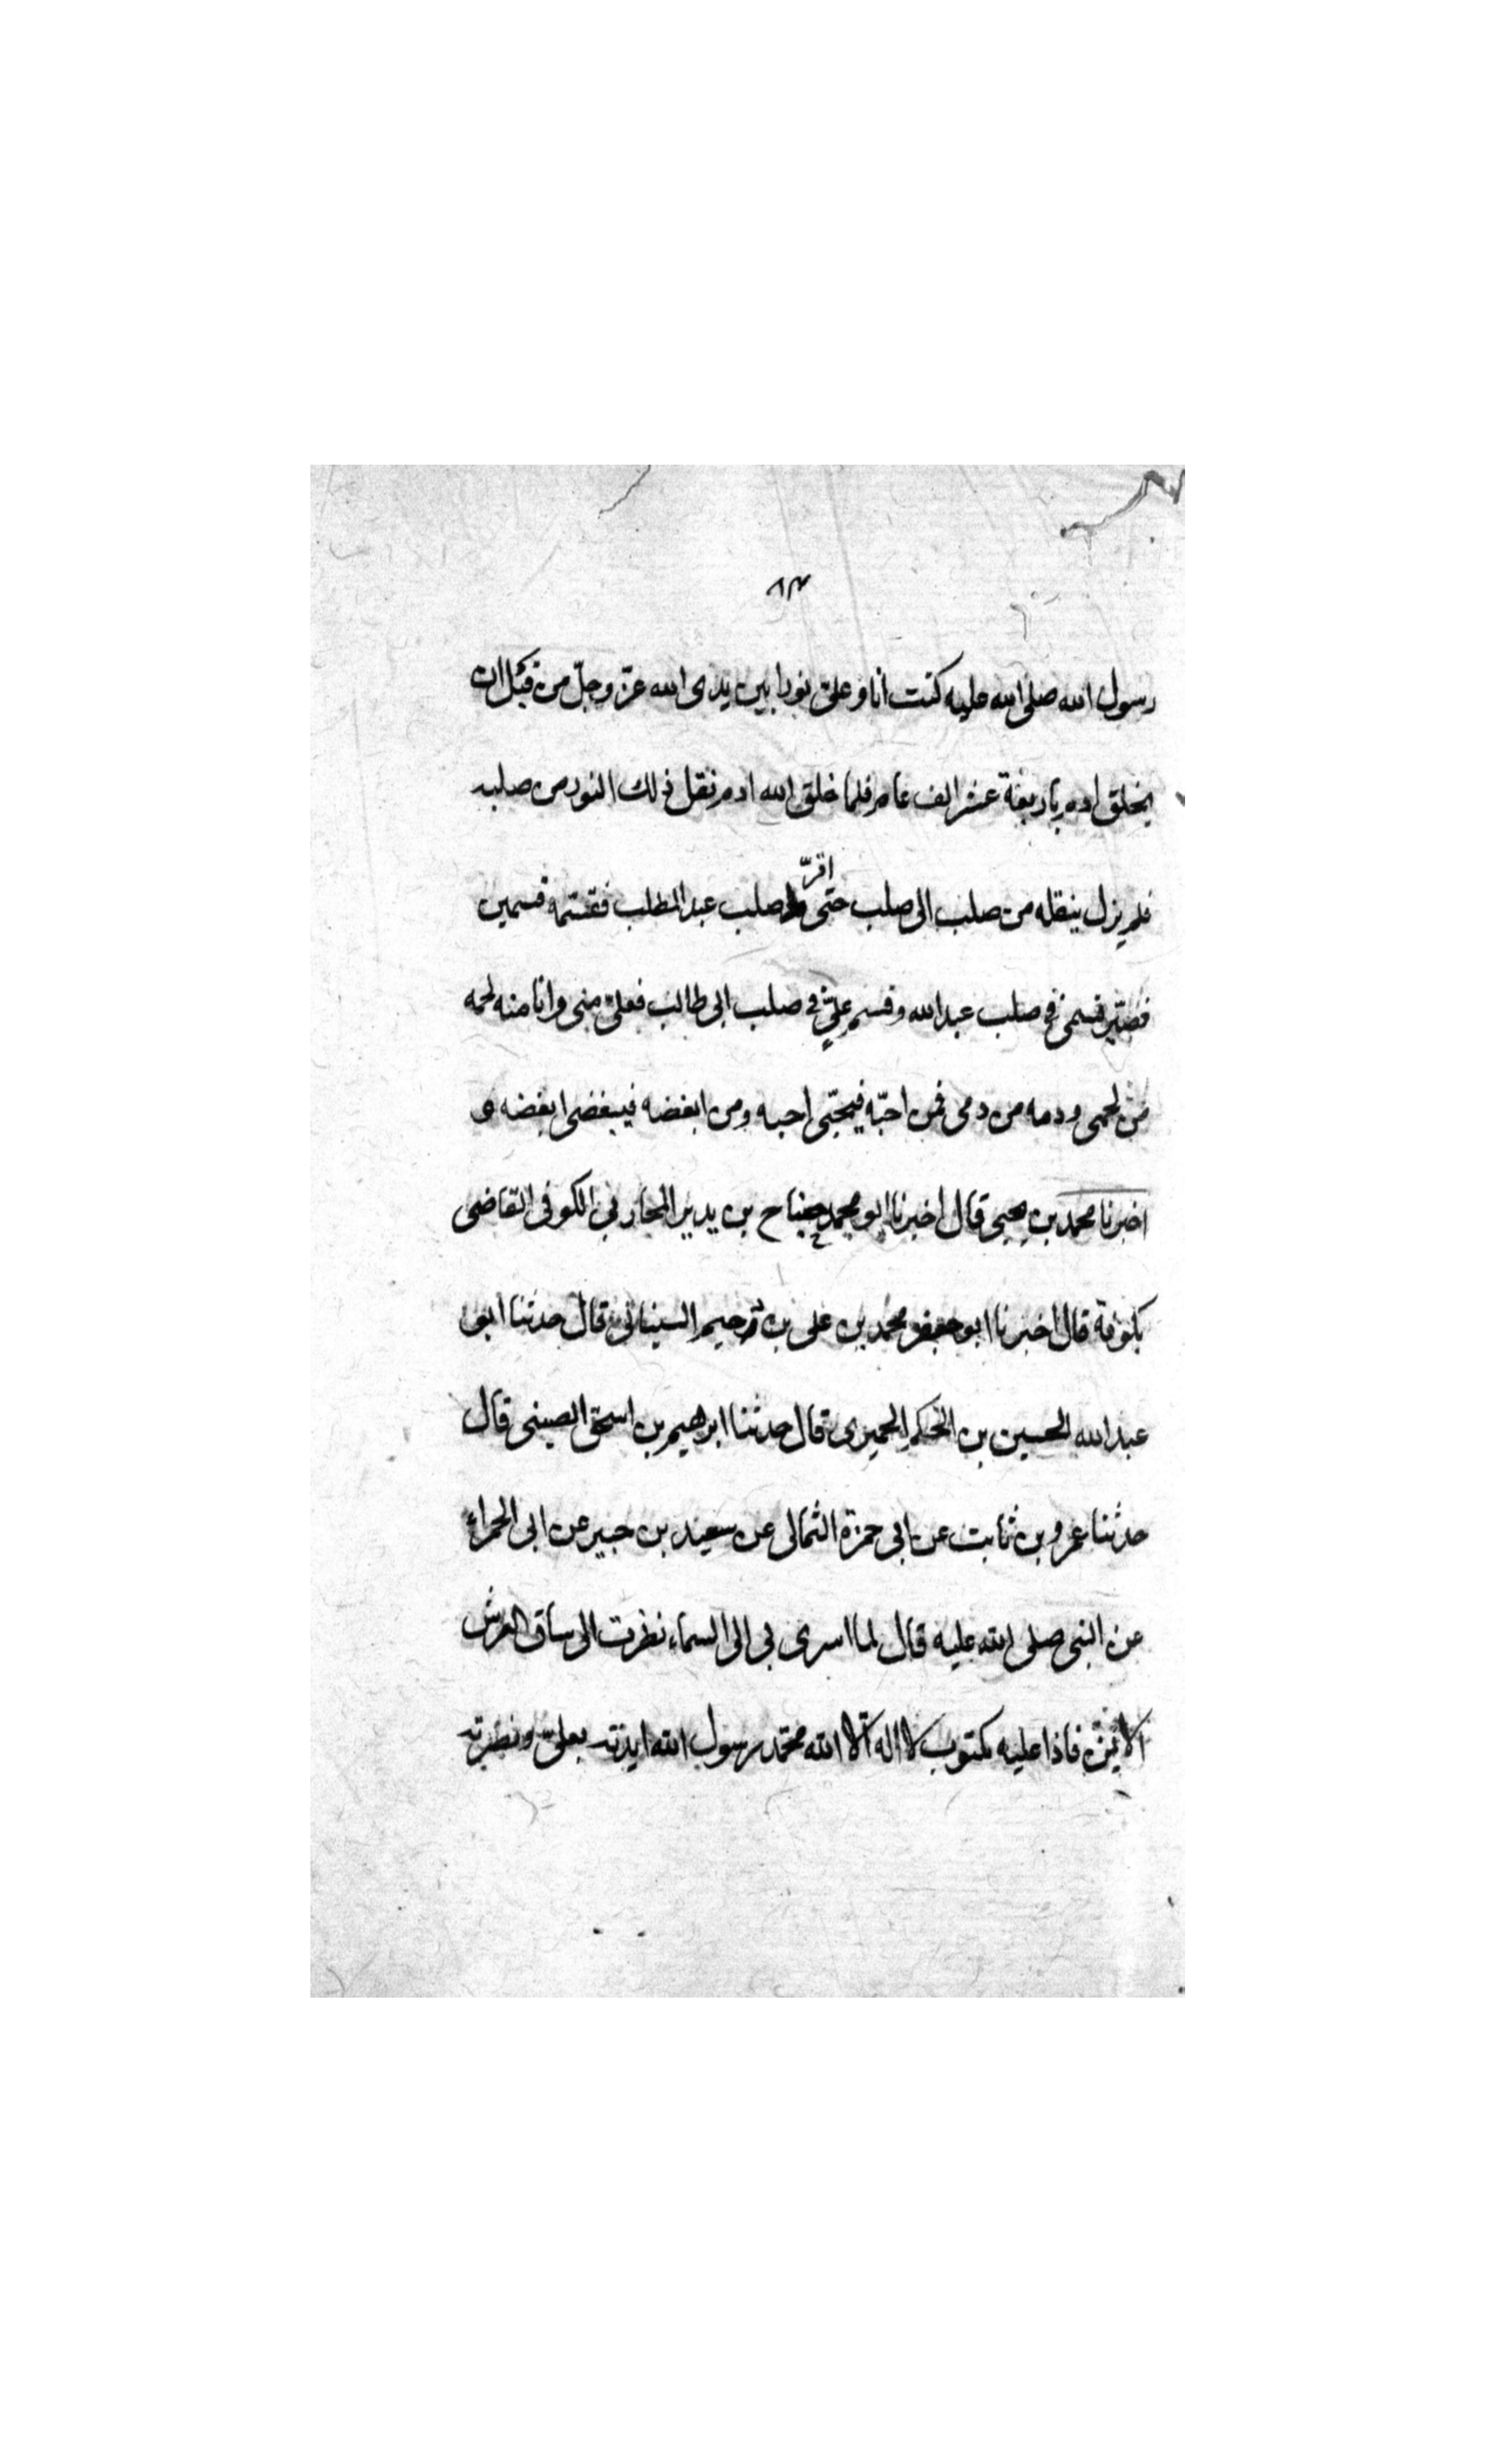 ٨٣
رسول الله صلى الله عليه كنت انا و على نورا بين يدى الله عزّ وجلّ من قبل ان
يخلق ادم باربعة عشر الف عام فلما خلق الله ادم نقل ذلك النور من صلبه
اقرّ
فلم يزل ينقله من صلب الى صلب حتى صلب عبد المطلب فقسّمه قسمين
فصيّر قسمى فى صلب عبد الله وقسم علىّ فى صلب ابى طالب فعلىّ منى وانا منه لحمه
من لحمى ودمه من دمى فمن احبّه فبحبّى احبه ومن ابغضه فببغضى ابغضه و
اخبرنا محمد بن يحيى قال اخبرنا ابو محمد جناح بن يدير المحاربى الكوفى القاضى
بكوفة قال اخبرنا ابو جعفر محمد بن على بن دحيم السينانى قال حدثنا ابو
عبد الله الحسين بن الحكم الحميرى قال حدثنا ابرهيم بن اسحق الصينى قال
حدثنا عمرو بن ثابت عن ابى حمزة الثمالى عن سعيد بن جبير عن ابى الحمراء
عن النبى صلى الله عليه قال لما اسرى بى الى السماء نظرت الى ساق العرش
الايمن فاذا عليه مكتوب لا اله الا الله محمّد رسول الله ايدته بعلىّ ونصرته